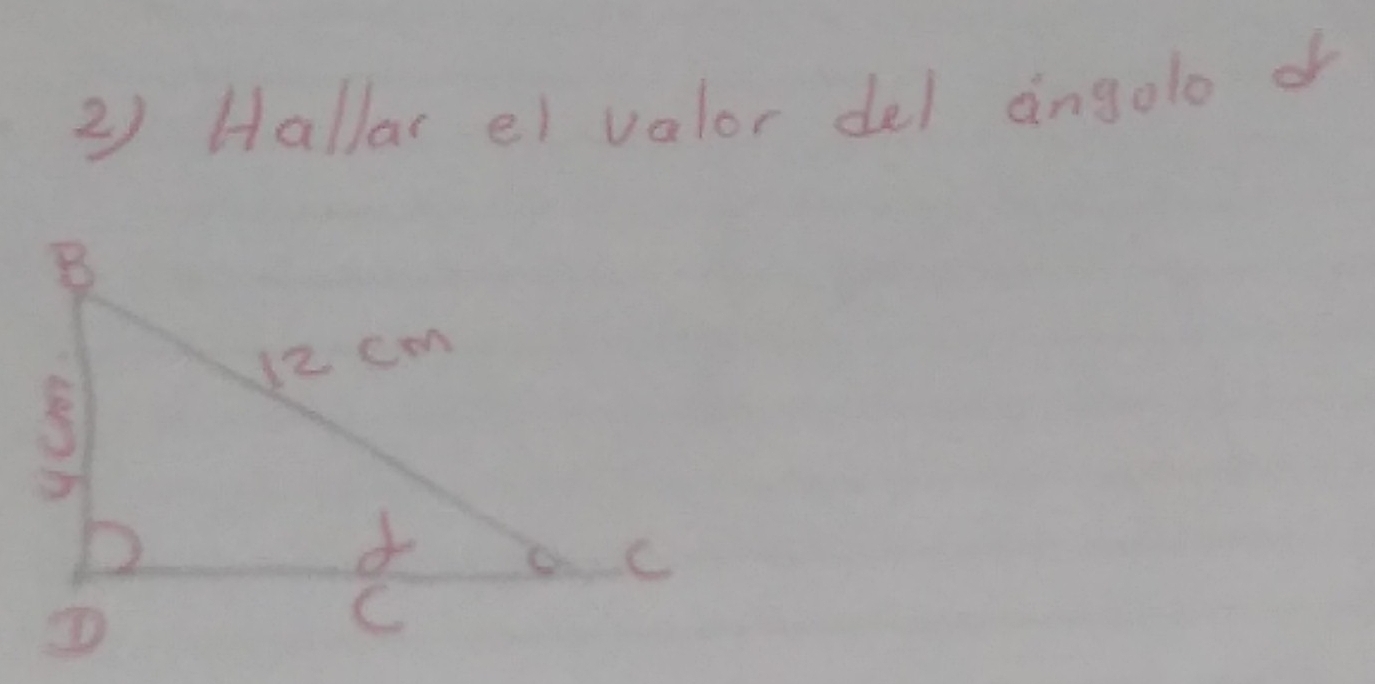 2) Hallar el valor del ángolo α
B
12 cm
4 cm
α
C
C
D